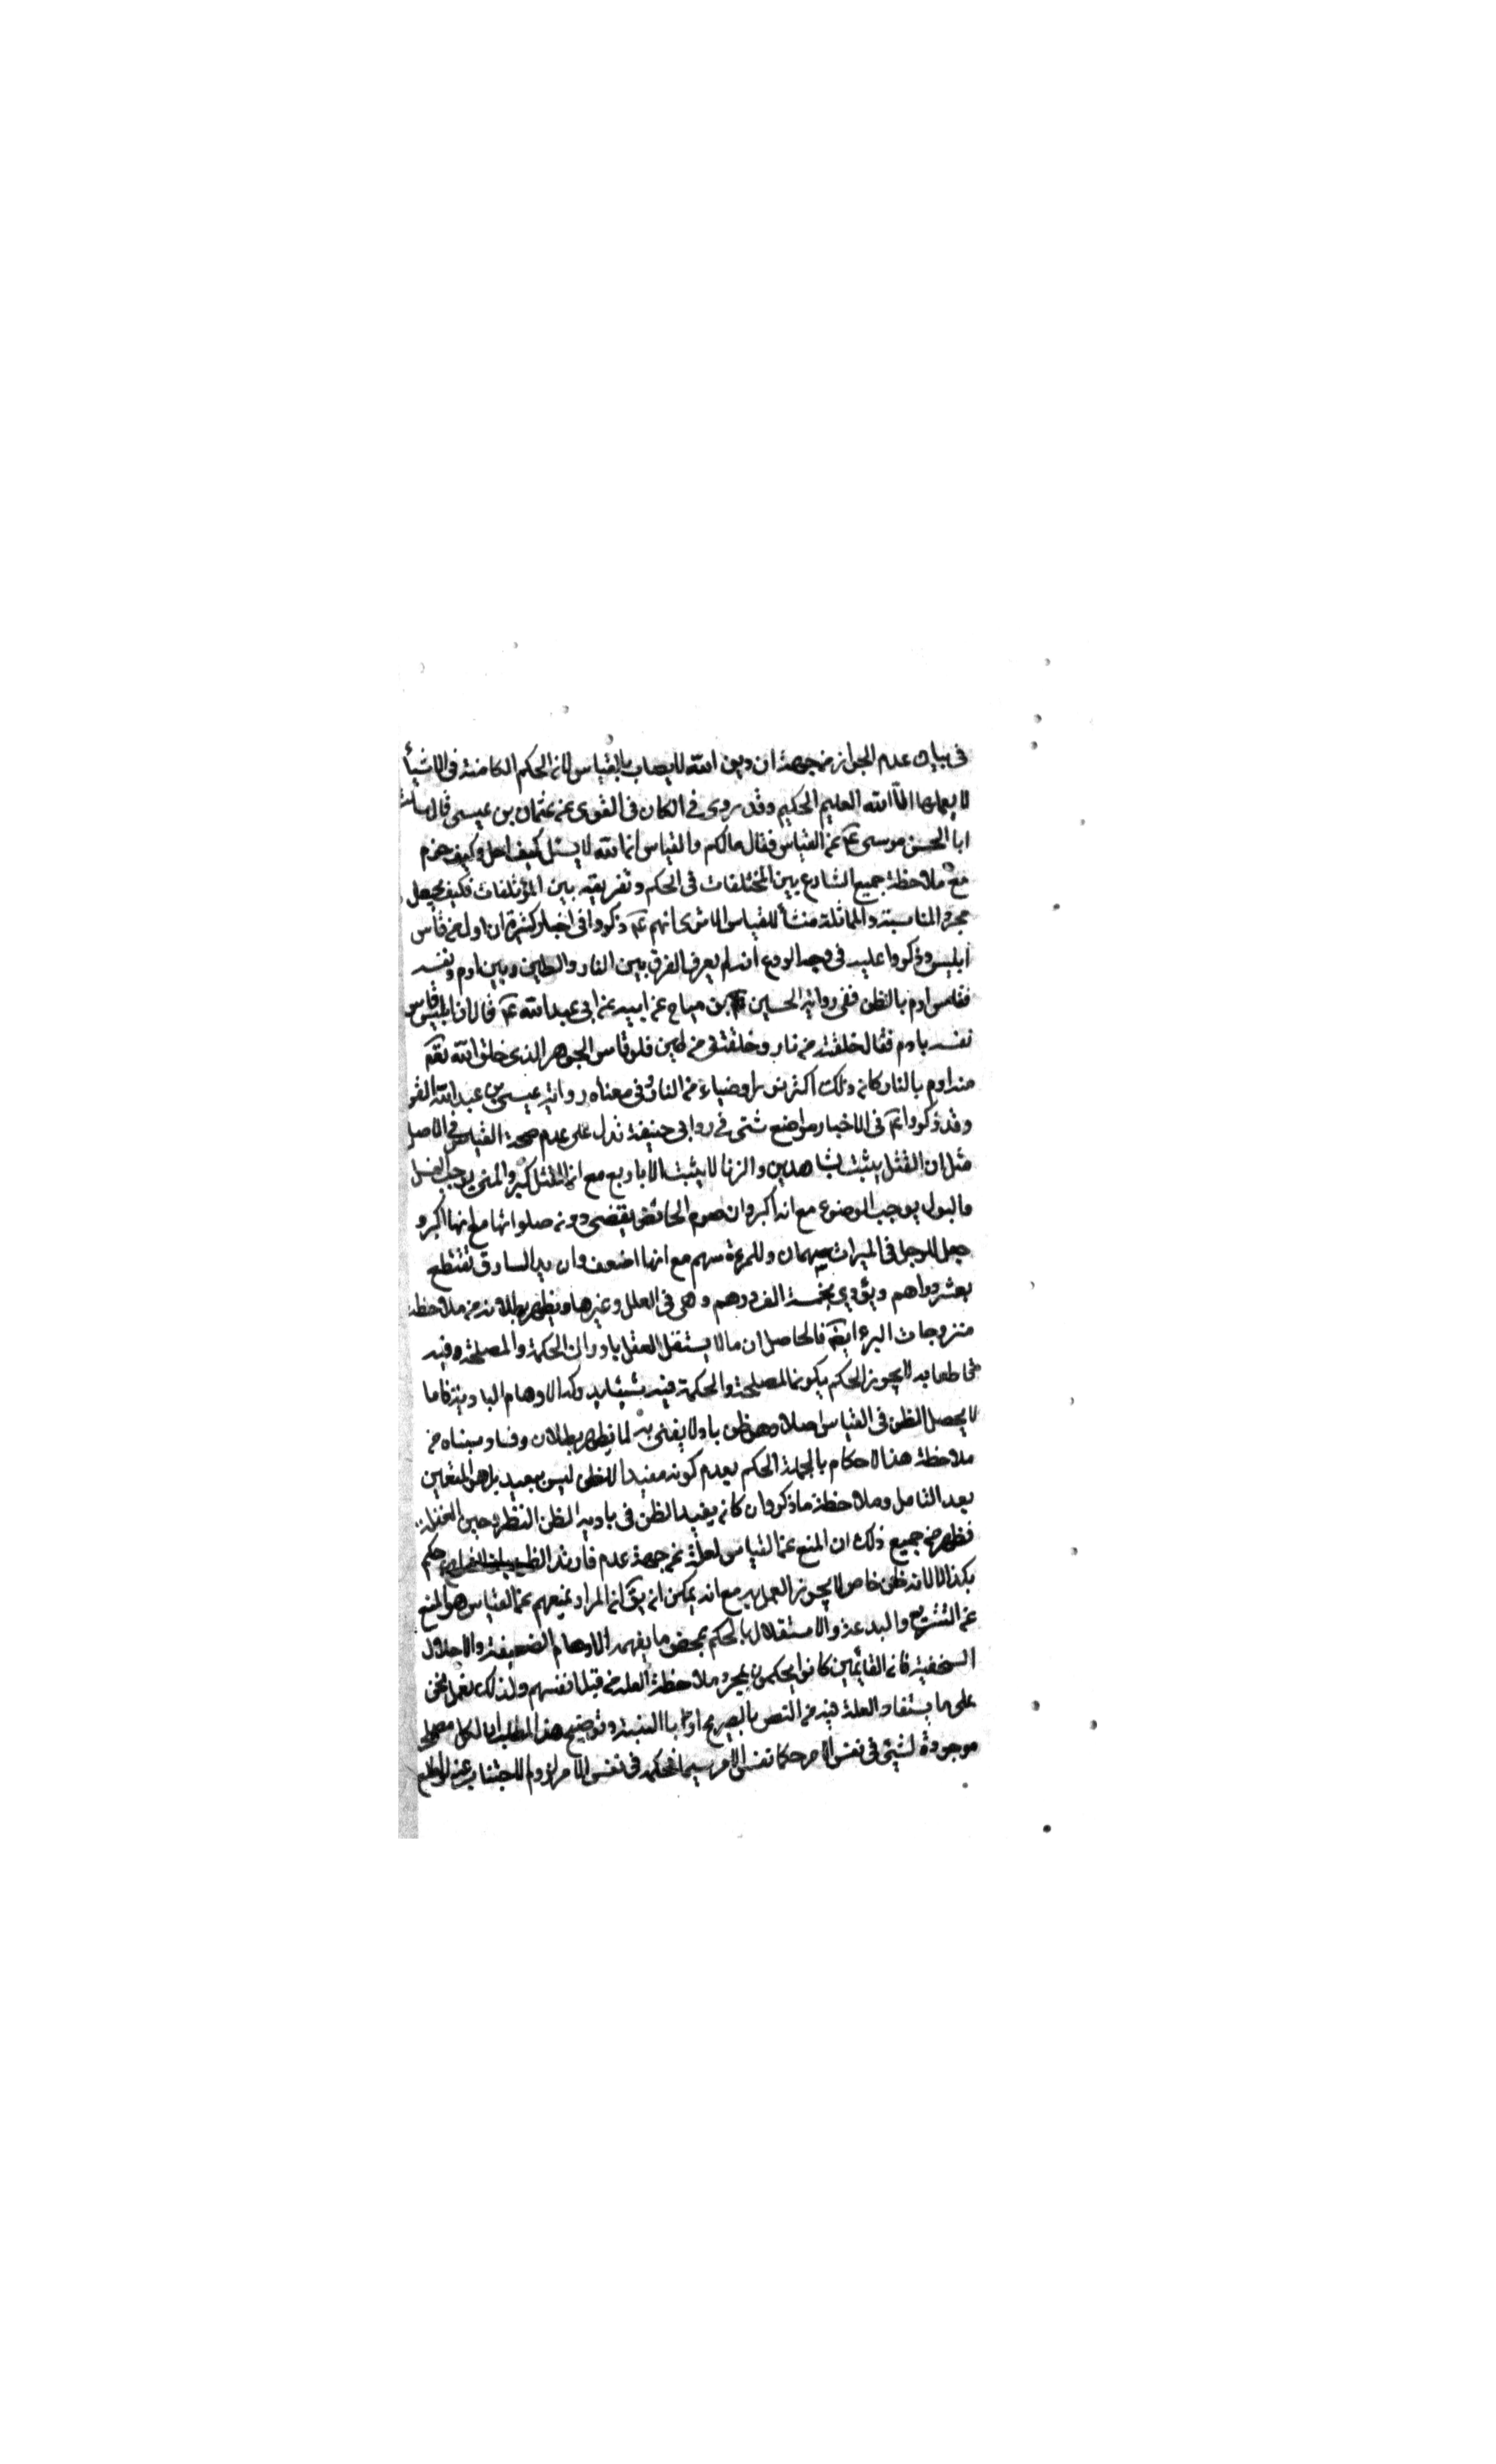 في بيان عدم الجواز من جهة ان دين الله لا يصاب بالقياس لان الحكم الكامنة في الاشيأ
لا يعلمها الّا الله العليم الحكيم وقد روى في الكافي في القوى عن عثمان بن عيسى قال سالت
ابا الحسن موسى عم عن القياس فقال مالكم والقياس ان الله لا يسئل كيف احل وكيف حرم
مع ملاحظة جميع الشارع بين المختلفات في الحكم وتفريقه بين المؤتلفات فكيف يجعل
مجرد المناسبة والمماثلة منشأ للقياس الا ترى انهم عم ذكروا في اخبار كثيرة ان اول من قاس
ابليس وذكروا عليه في وجه الردع انه لم يعرف الفرق بين النار والطين وبين ادم ونفسه
فقاس ادم بالظن ففي رواية الحسين بن مياح عن ابيه عن ابي عبد الله عم قال ان ابليس قاس
نفسه بادم فقال خلقته من نار وخلقتني من طين فلو قاس الجوهر الذي خلق الله تعم
منه ادم بالنار كان ذلك اكثر نورا وضياء من النار وفي معناه رواية عيسى بن عبد الله القر
وقد ذكروا عم في الاخبار مواضع شتى في رد ابي حنيفة تدل على عدم صحة القياس في الاصل
مثل ان القتل يثبت بشاهدين والزنا لا يثبت الا باربع مع ان القتل اكبر والمني يوجب الغسل
والبول يوجب الوضوء مع انه اكبر وان صوم الحائض يقضى دون صلواتها مع انها اكبر و
جعل للرجل في الميراث سهمان وللمرءة سهم مع انها اضعف وان يد السارق تقطع
بعشر دراهم ويؤدي بخمسة الف درهم وهي في العلل وغيرها ويظهر بطلانه من ملاحظة
منزوحات البئر ايضا فالحاصل ان ما لا يستقل العقل بادراك الحكمة والمصلحة وفيه
قاطعا به لا يجوز الحكم بكون المصلحة والحكمة فيه بشيئا يدركه الاوهام البادية فاما
لا يحصل الظن في القياس اصلا وهو ظن باد لا يغني به لما يظهر بطلان وفساد مبناه من
ملاحظة هذا الاحكام بالجملة الحكم بعدم كونه مفيدا للظن ليس ببعيد بل هو المتعين
بعد التامل وملاحظة ما ذكر وان كان يفيد الظن في بادية الظن النظر وحين الغفلة
فظهر من جميع ذلك ان المنع عن القياس لعلة من جهة عدم فارند الظن حكم
بكذا لا لانه ظن خاص لا يجوز العمل به مع انه يمكن ان يق ان المراد بمنعهم عن القياس هو المنع
عن التشريع والبدعة والاستقلال بالحكم بمحض ما يفهمه الاوهام الضعيفة والاحلال
السخفية فان القائمين كانوا يحكمون بمجرد ملاحظة العلة من قبل انفسهم ولذلك نعمل نحن
على ما يستفاد العلة فيه من النص بالصريح او بالتنبية وتوضيح هذا المطلب ان لكل مصلحة
موجودة لشيئ في نفس الامر حكما نفس الامر سيما الحكمة في نفس الامر لزوم الاجتناب عنه